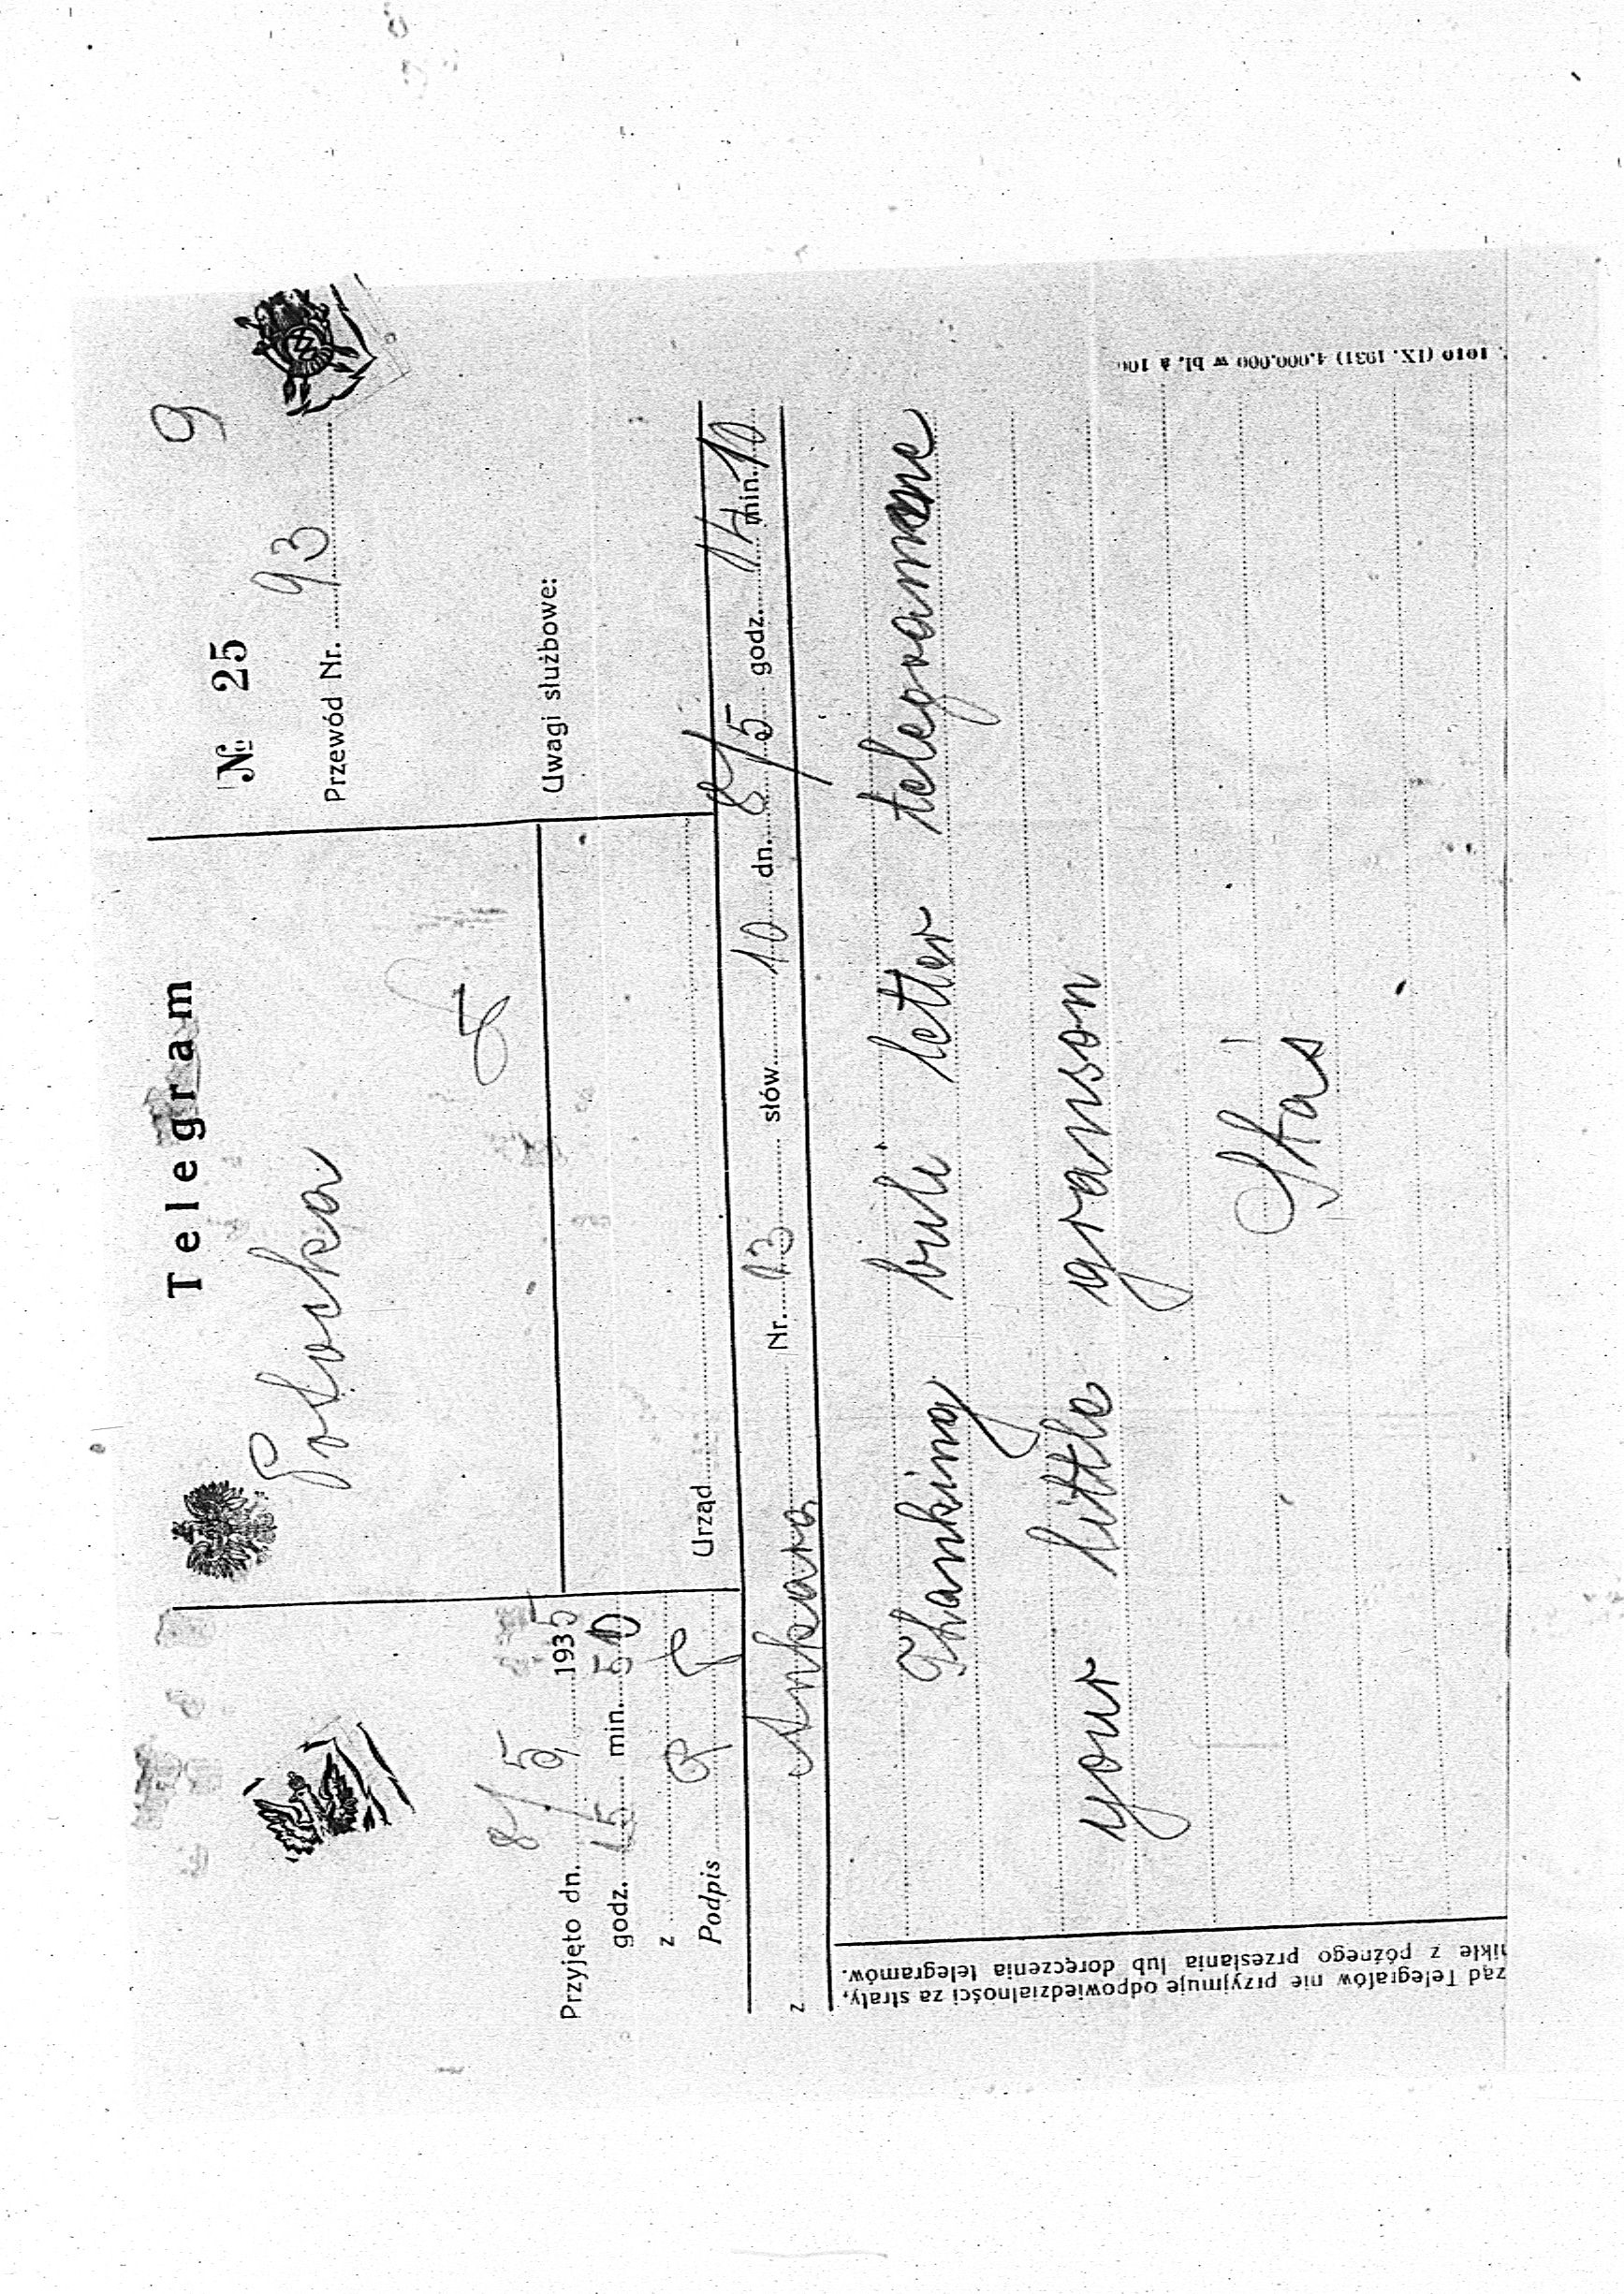 Telegram
№ 25
9
Przewód Nr. 93
Potocka
Uwagi służbowe:
8/5
Przyjęto dn. 1935
godz. 15 min.
z
Podpis
Urząd
z Ankara Nr. 13 słów 10 dn. 8/5 godz. 14 min. 10
Thanking buli letter telegramme
your little granson
Staś
ząd Telegrafów nie przyjmuje odpowiedzialności za straty,
nikłe z późnego przesłania lub doręczenia telegramów.
(IX. 1931) 4.000.000 w bl. à 100